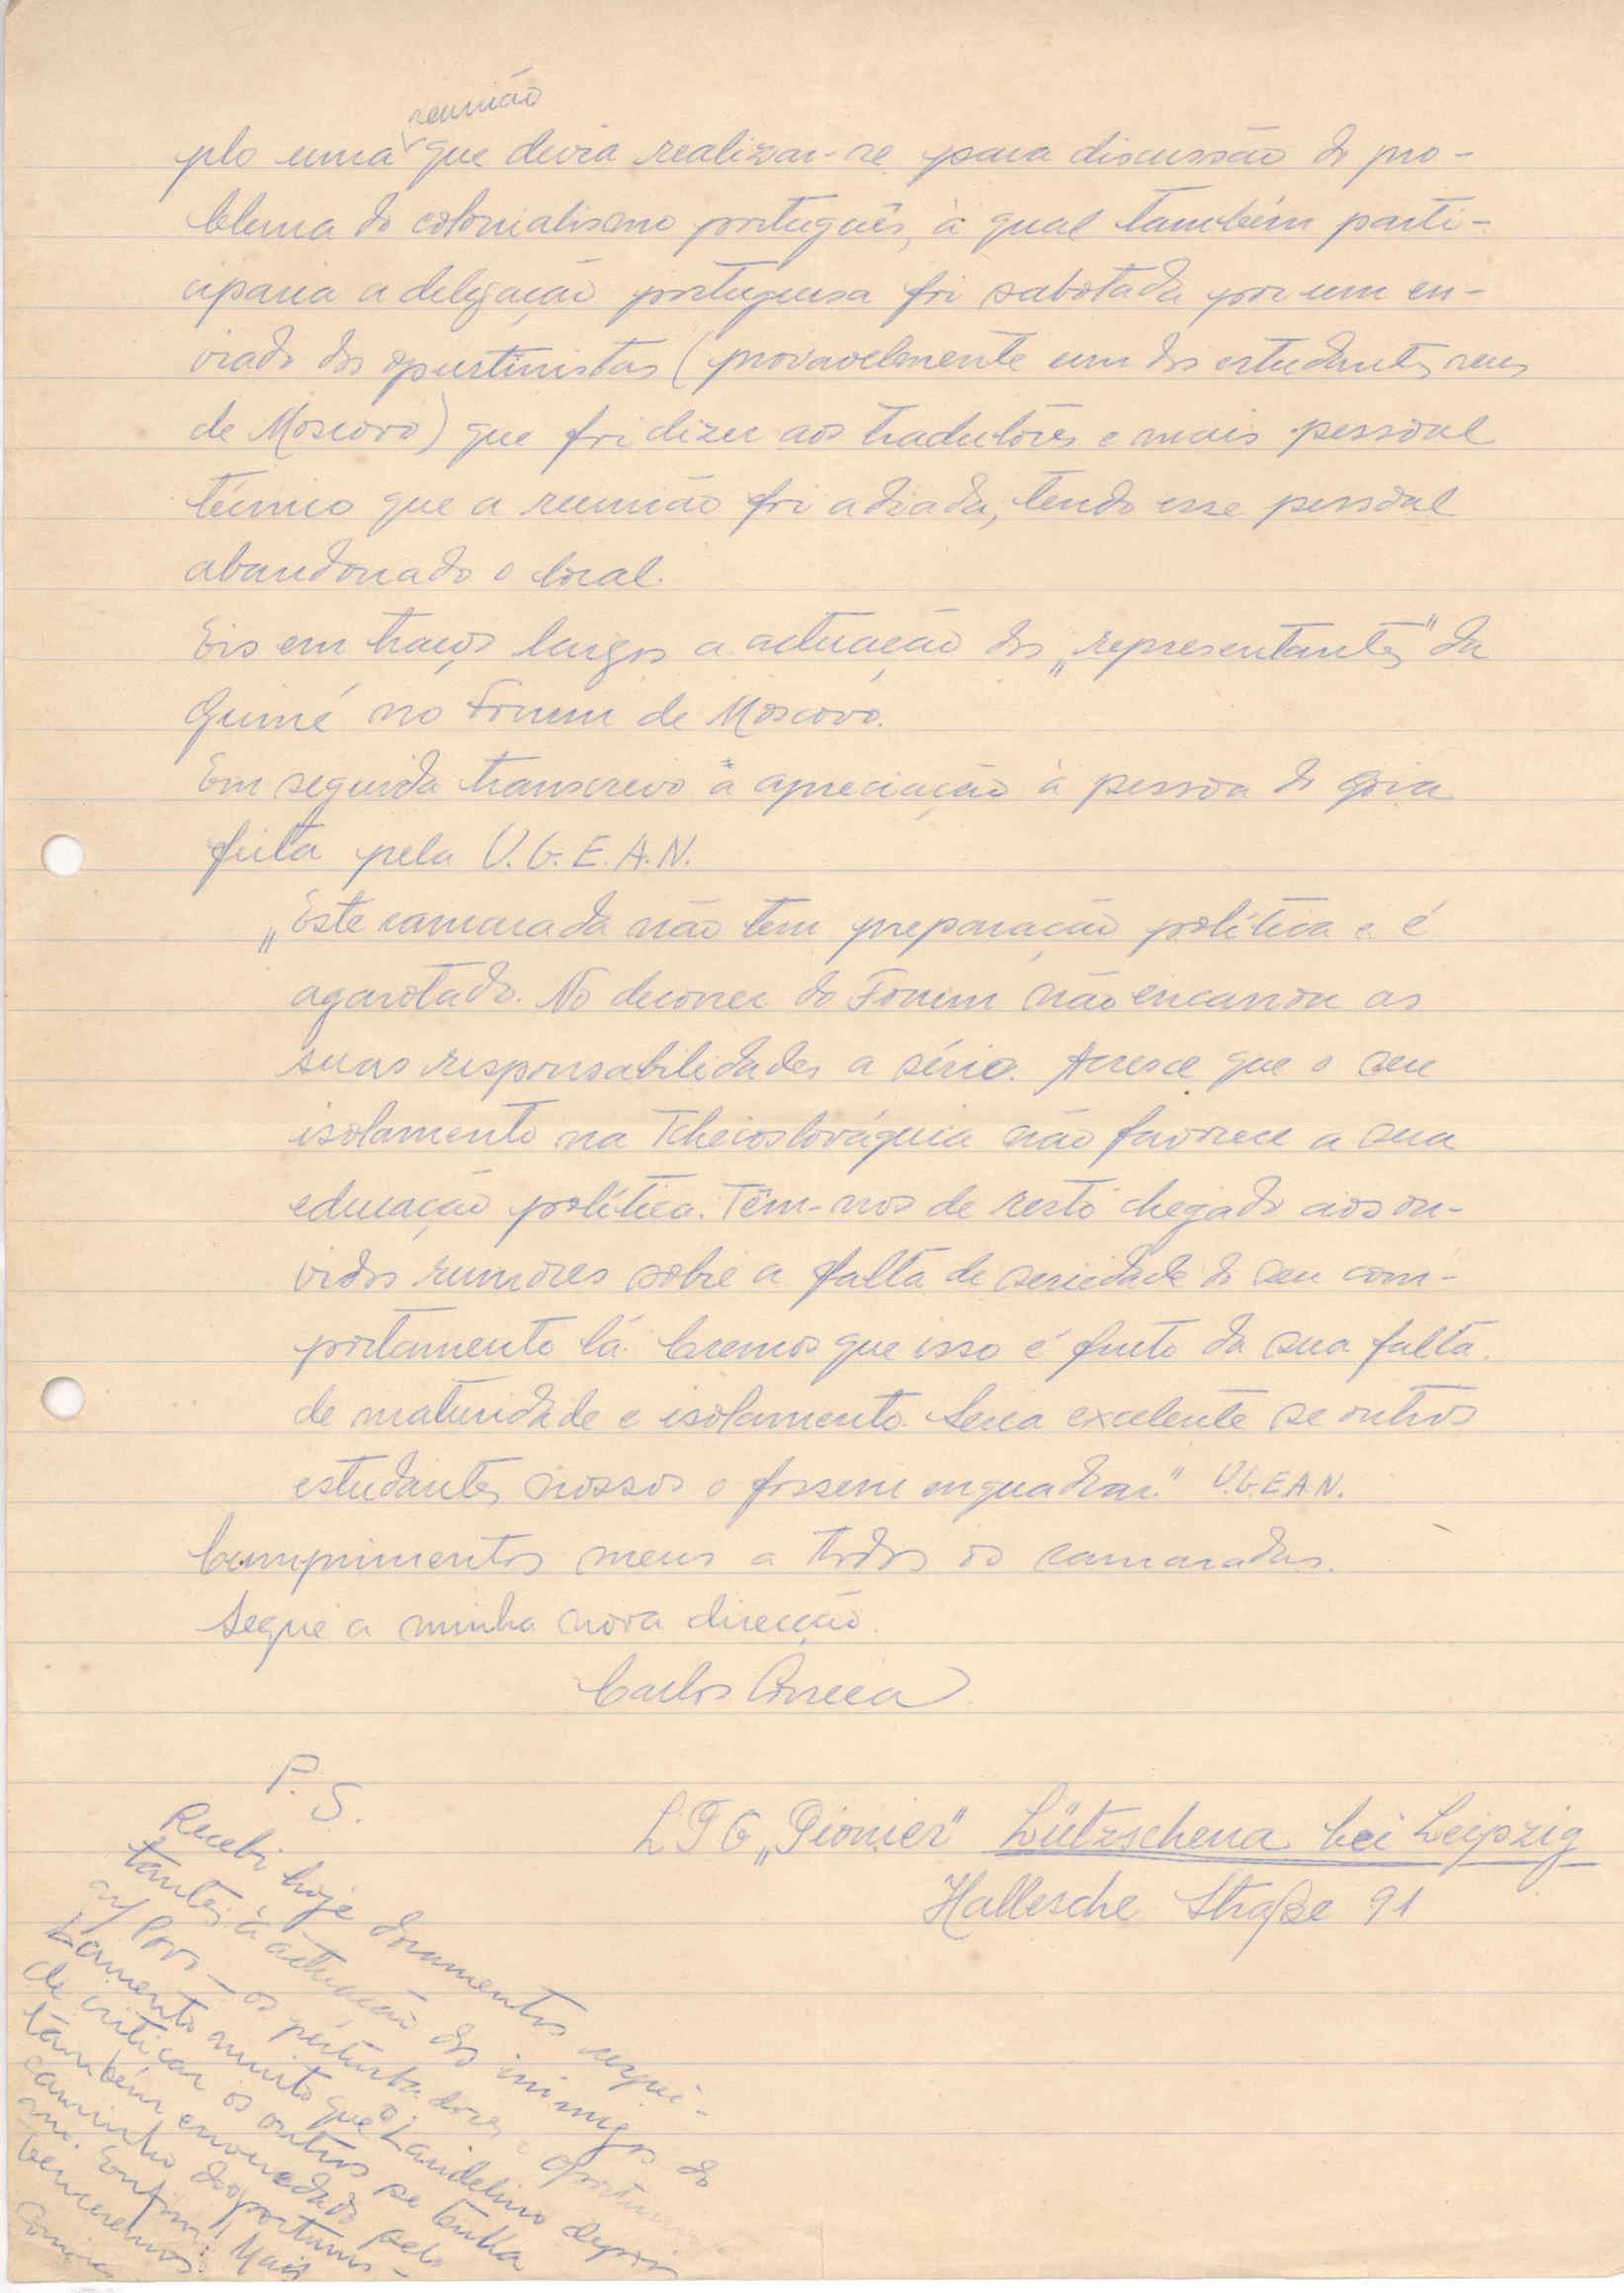 reunião
plo uma que devia realizar-se para discussão do pro-
blema do colonialismo português, à qual também parti-
ciparia a delegação portuguesa foi sabotada por um en-
viado dos oportunistas (provavelmente um dos estudantes seus
de Moscovo) que foi dizer aos tradutores e mais pessoal
técnico que a reunião foi adiada, tendo esse pessoal
abandonado o local.
Eis em traços largos a actuação dos „representantes" da
Guiné no Forum de Moscovo.
Em seguida transcrevo a apreciação à pessoa do
feita pela U.G.E.A.N.
„Este camarada não tem preparação política e é
agarotado. No decorrer do Forum não encarou as
suas responsabilidades a sério. Acresce que o seu
isolamento na Tchecoslováquia não favorece a sua
educação política. Têm-nos de resto chegado aos ou-
vidos rumores sobre a falta de seriedade do seu com-
portamento lá. Cremos que isso é fruto da sua falta
de maturidade e isolamento. Seria excelente se outros
estudantes nossos o fossem enquadrar." U.G.E.A.N.
Cumprimentos meus a todos os camaradas.
Segue a minha nova direcção.
Carlos Correia
LPG „Pionier" Lützschena bei Leipzig
Hallesche Straße 91
P.S.
Recebi hoje documentos respei-
tantes à actuação dos inimigos do
n/ Povo – os perturbadores e
Lamento muito que o Laudelino depois
de criticar os outros se tenha
também enveredado pelo
caminho do oportunis-
mo. Enfim! Mas
venceremos!